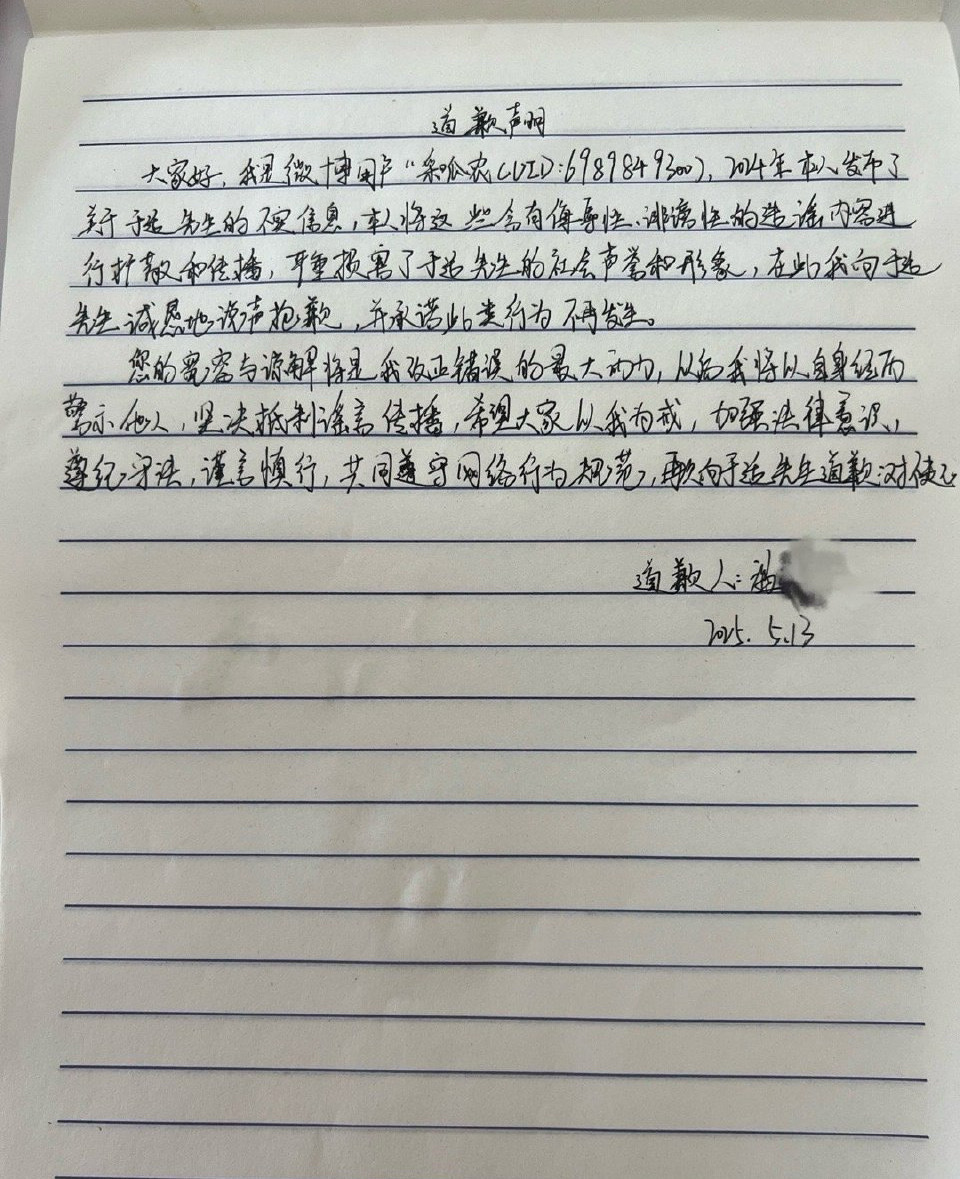 道歉声明
大家好，我是微博用户“杂呱农(UID:6989849300)，2024年本人发布了
关于于适先生的不实信息，本人将这些含有侮辱性、诽谤性的造谣内容进
行扩散和传播，严重损害了于适先生的社会声誉和形象，在此我向于适
先生诚恳地说声抱歉，并承诺此类行为不再发生。
您的宽容与谅解将是我改正错误的最大动力，以后我将以自身经历
警示他人，坚决抵制谣言传播，希望大家以我为戒，加强法律意识，
遵纪守法，谨言慎行，共同遵守网络行为规范，再次向于适先生道歉，对不起
道歉人：
2025.5.13